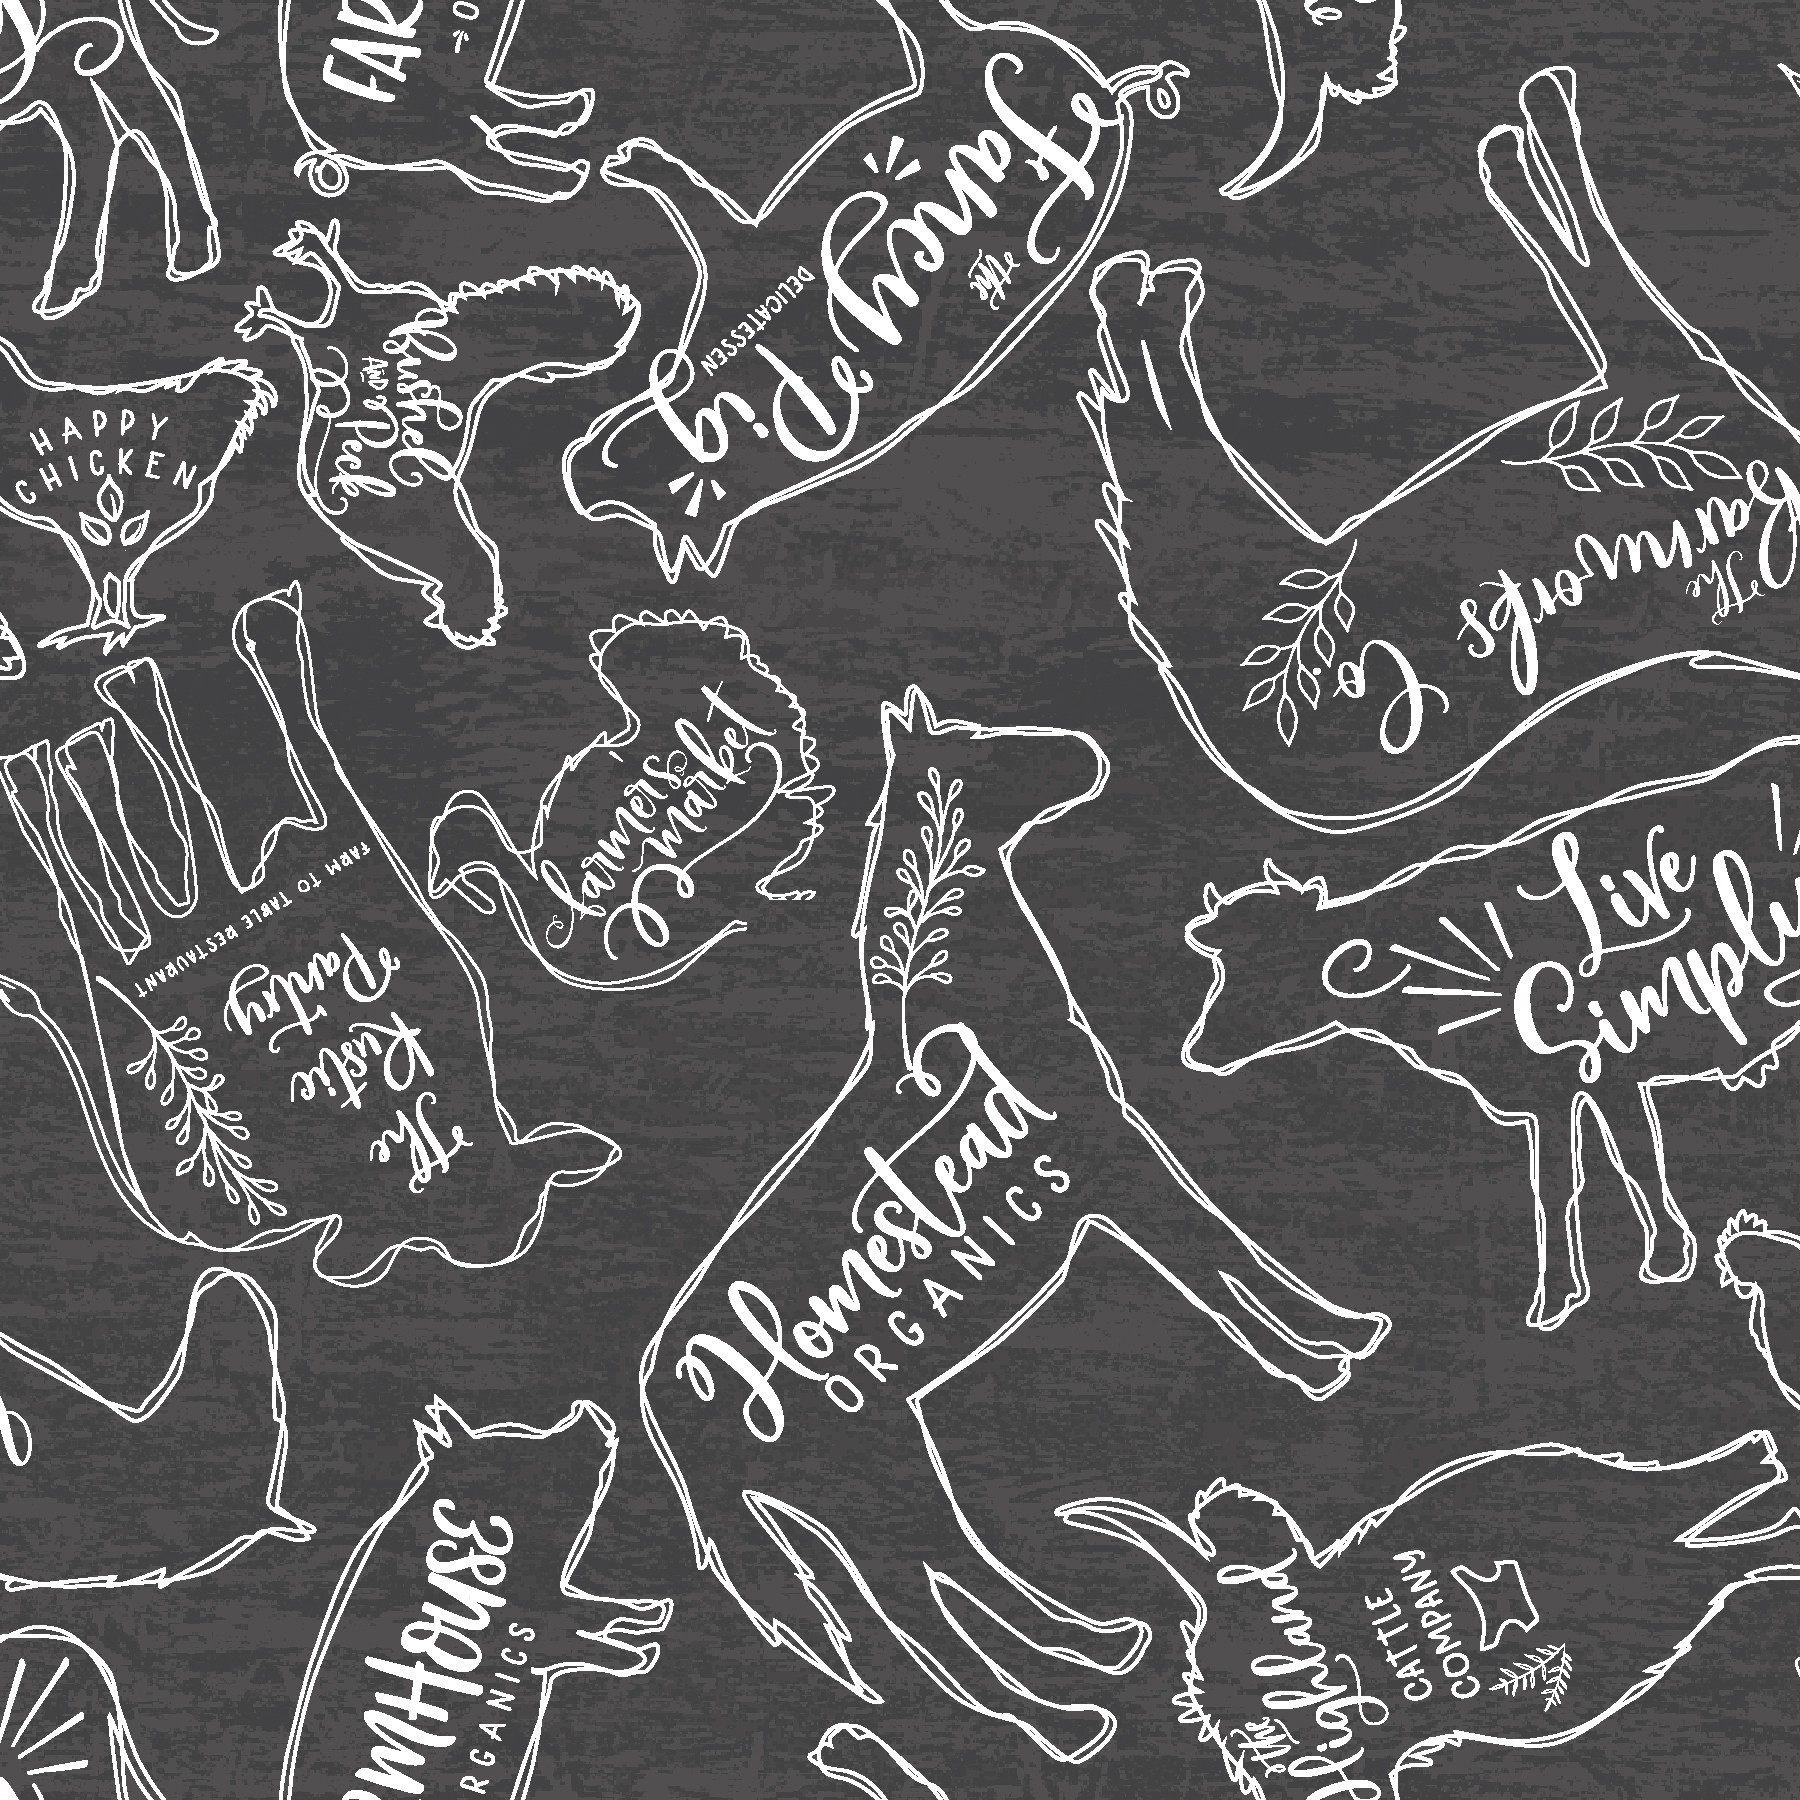 FAR
The
Fancy
Pig
DELICATESSEN
Bushel
AND
Peck
HAPPY
CHICKEN
The
Barnyortes
Co.
farmers
market
Live
Simply
FARM TO TABLE RESTAURANT
The
Rustic
Pantry
Homestead
ORGANICS
RMHOUSE
RGANICS
The
Highland
CATTLE
COMPANY